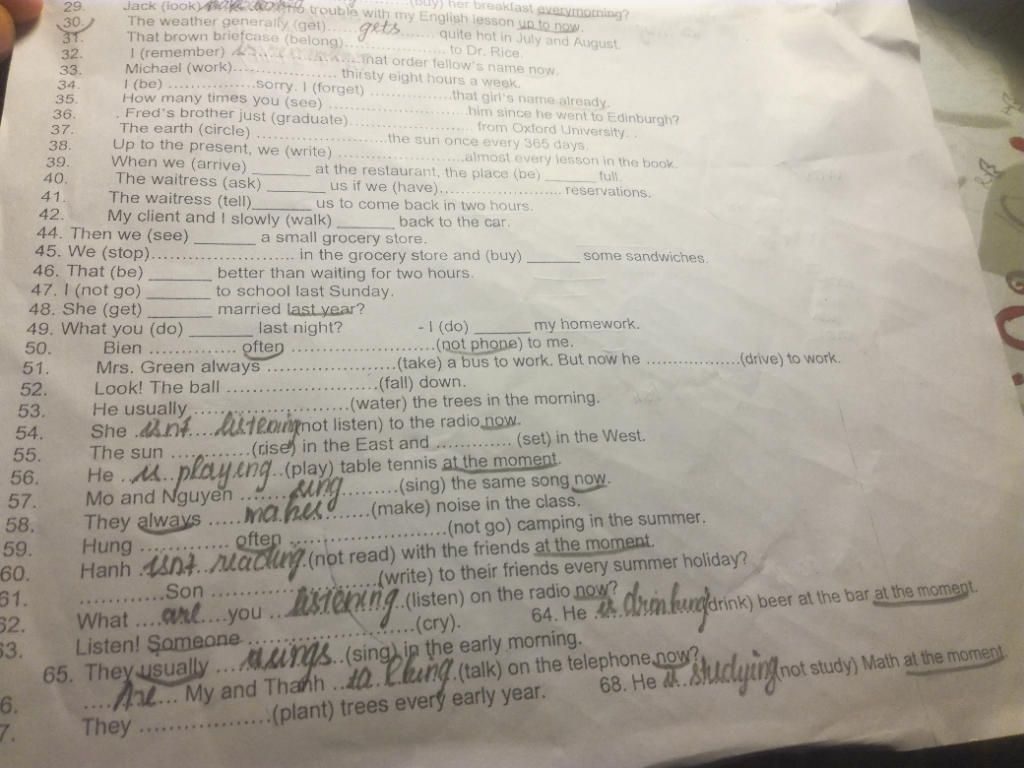 (buy) her breakfast everymorning?
29. Jack (look) trouble with my English lesson up to now.
30. The weather generally (get)......gets........ quite hot in July and August.
31. That brown briefcase (belong) .................. to Dr. Rice.
32. I (remember) .................. that order fellow's name now.
33. Michael (work)...................... thirsty eight hours a week.
34. I (be) ..................sorry. I (forget) .................that girl's name already.
35. How many times you (see) ............................him since he went to Edinburgh?
36. . Fred's brother just (graduate)......................... from Oxford University. .
37. The earth (circle) .........................the sun once every 365 days.
38. Up to the present, we (write) ........................almost every lesson in the book.
39. When we (arrive) _______ at the restaurant, the place (be) ______ full.
40. The waitress (ask) _______ us if we (have)........................ reservations.
41. The waitress (tell)_______ us to come back in two hours.
42. My client and I slowly (walk) _______ back to the car.
44. Then we (see) _______ a small grocery store.
45. We (stop)........................ in the grocery store and (buy) ______ some sandwiches.
46. That (be) _______ better than waiting for two hours.
47. I (not go) _______ to school last Sunday.
48. She (get) _______ married last year?
49. What you (do) _______ last night? - I (do) ______ my homework.
50. Bien .............. often ........................(not phone) to me.
51. Mrs. Green always .....................(take) a bus to work. But now he ...............(drive) to work.
52. Look! The ball .........................(fall) down.
53. He usually .........................(water) the trees in the morning.
54. She .isnt.....listening(not listen) to the radio now.
55. The sun .............(rise) in the East and ............ (set) in the West.
56. He ..is..playing..(play) table tennis at the moment.
57. Mo and Nguyen ........sing.........(sing) the same song now.
58. They always .....makes.......(make) noise in the class.
59. Hung .............. often .........................(not go) camping in the summer.
60. Hanh .isnt..reading.(not read) with the friends at the moment.
61. ..............Son ..........................(write) to their friends every summer holiday?
62. What ....are....you ...listening..(listen) on the radio now? 64. He .is.drinking(drink) beer at the bar at the moment.
63. Listen! Someone .........................(cry).
65. They usually ....sings..(sing) in the early morning.
6. ....Are... My and Thanh ..talking.(talk) on the telephone now? 68. He is..studying(not study) Math at the moment.
7. They ..................(plant) trees every early year.